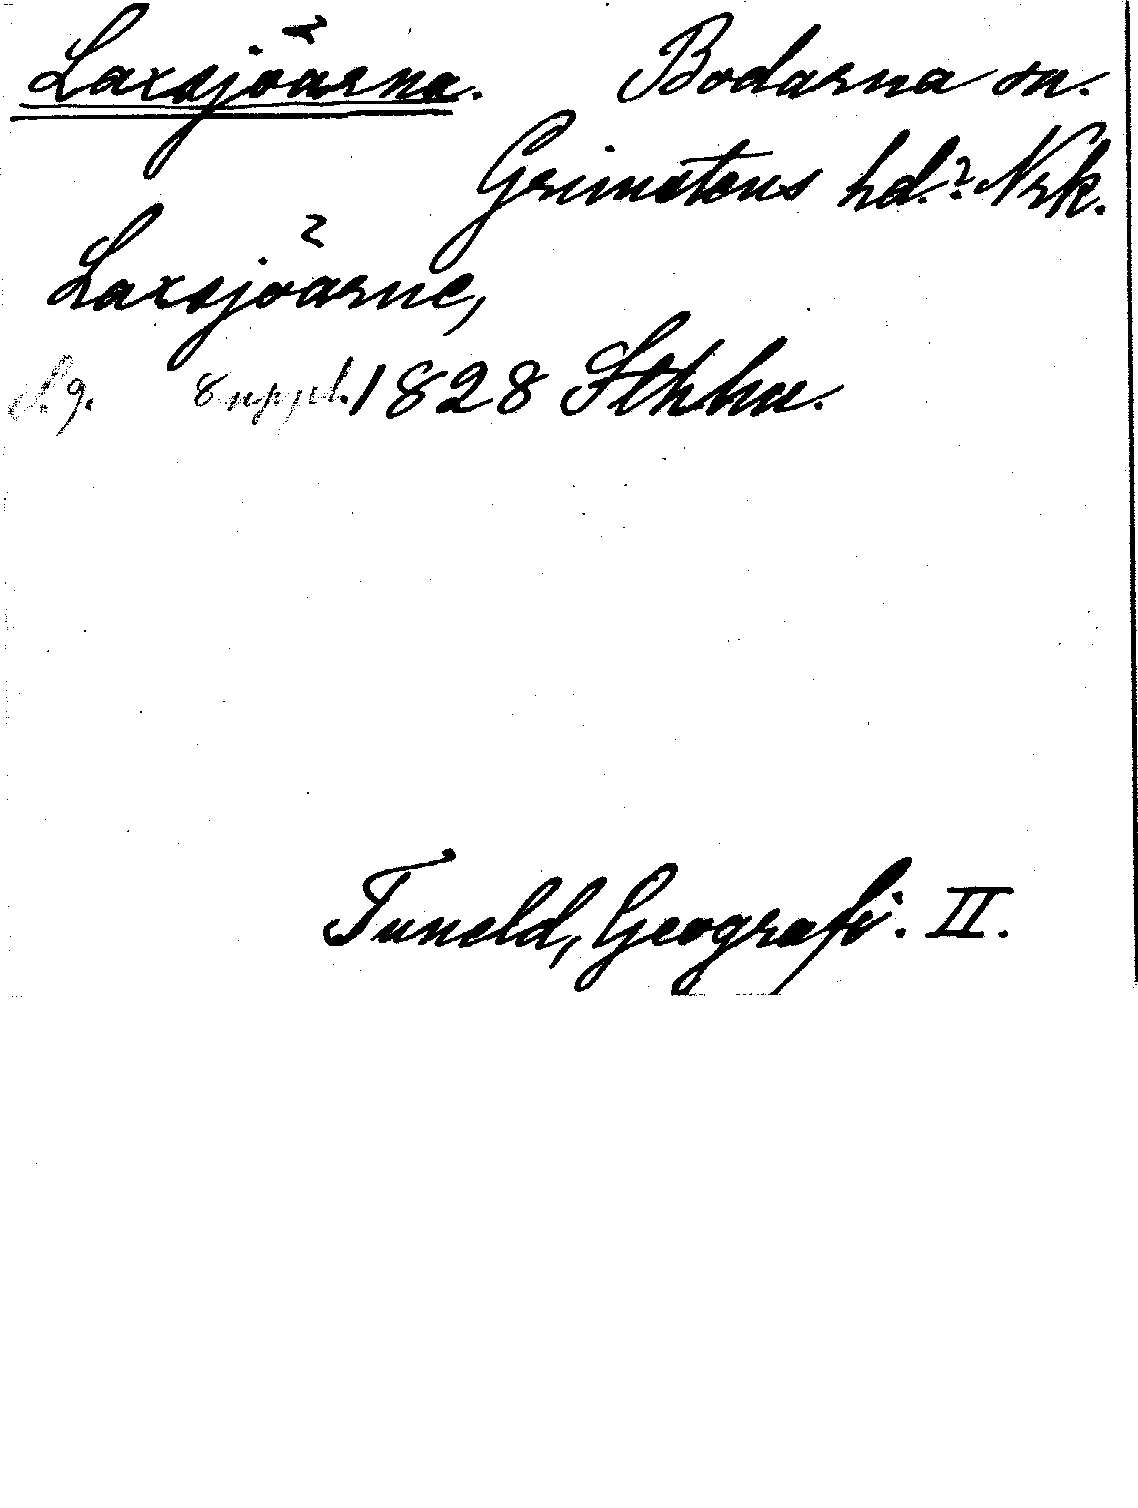 Laxsjöarna. Bodarna sn.
Grimstens hd. Nrk.
Laxsjöarne,
s. 9. 8 uppl. 1828 Sthlm.
Tuneld, Geografi. II.